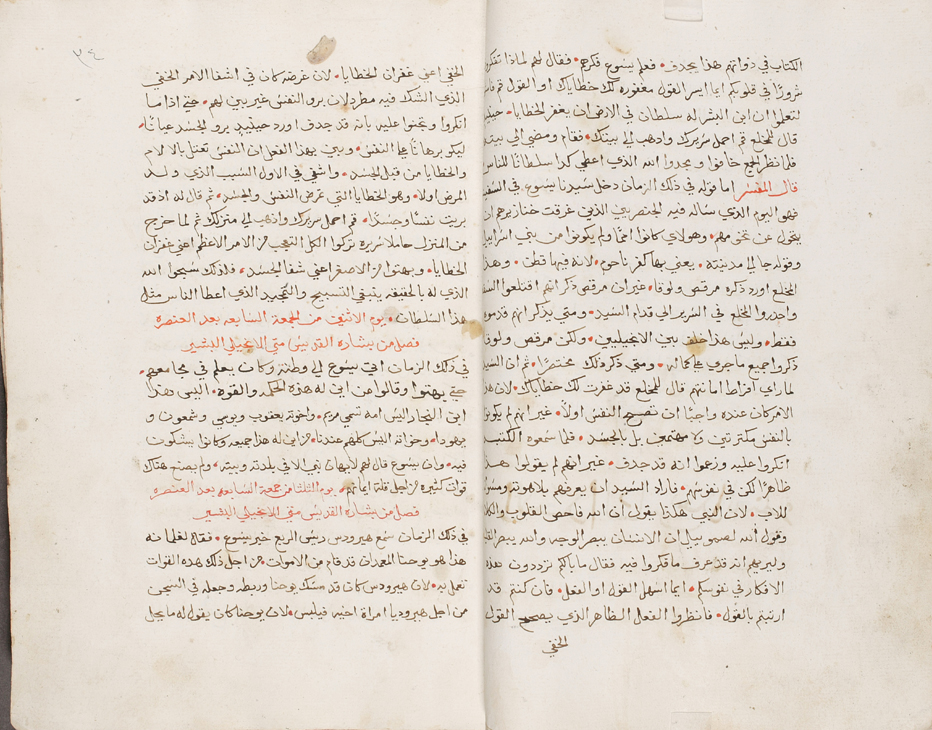 الكتاب في ذواتهم هذا يجدف • فعلم يسوع فكرهم • فقال لهم لماذا تفكرو
شرورًا في قلوبكم ايما ايسر القول مغفوره لك خطاياك او القول قم فا
لتعلموا ان ابن البشر له سلطان في الارض ان يغفر الخطايا • حينيذ
قال للمخلع قم احمل سريرك وادهب الي بيتك • فقام ومضي الي بيته
فلما نظر الجمع خافوا ومجدوا الله الذي اعطي كدا سلطانًا للناس
قال المفسر اما قوله في ذلك الزمان دخل سيدنا يسوع في السفي
فهو اليوم الذي ساله فيه الجنصريين الذين غرقت خنازيرهم ان
يتحول عن تخومهم • وهولاي كانوا اممًا ولم يكونوا من بني اسراييل
وقوله جا الي مدينته • يعني بها كفر ناحوم • لانه فيها قطن • وهذا
المخلع اورد ذكره مرقص ولوقا • غير ان مرقص ذكر انهم اقتلعوا السقف
واحدروا المخلع في السرير الي قدام السيد • ومتي يذكر انهم قدموه
فقط • وليس هذا خلف بين الانجيليين • ولكن مرقص ولوقا
ذكروا جميع ما جري علي كماله • ومتي ذكر ذلك مختصرًا • ثم ان السيد
لما راي افراط امانتهم قال للمخلع قد غفرت لك خطاياك • لان هذا
الامر كان عنده واجبًا ان نصحح النفس اولًا • غير انهم لم يكونوا
بالنفس مكترتين ولا مهتمين بل بالجسد • فلما سمعوه الكتبه
انكروا عليه وزعموا انه قد جدف • غير انهم لم يقولوا هذا
ظاهرًا لكن في نفوسهم • فاراد السيد ان يعرفهم بلاهوته ومساو
للاب • لان النبي هكذا يقول ان الله فاحص القلوب والكلا
وقول الله لصمويل ان الانسان يبصر الوجه والله يبصر القلب
وليريهم انه قد عرف ما فكروا فيه فقال ما بالكم ترددون هذه
الافكار في نفوسكم • ايما اسهل القول او الفعل • فان كنتم قد
ارتبتم بالقول • فانظروا الفعل الظاهر الذي يصحح القول
الخفي
٣٤
الخفي اعني غفران الخطايا • لان غرضه كان في اشفا الامر الخفي
الذي الشك فيه مطرد لان برو النفس غير بين لهم • حتي اذا ما
انكروا وتجنوا عليه بانه قد جدف اورد حينيذ برو الجسد عيانًا •
ليكو برهانًا علي النفس • وبين بهذا الفعل ان النفس تعتل بالالام
والخطايا من قبل الجسد • واشفي في الاول السبب الذي ولد
المرض اولًا • وهو الخطايا التي تمرض النفس والجسد • ثم قال له اذ قد
بريت نفسًا وجسدًا • قم احمل سريرك واذهب الي منزلك ثم لما خرج
من المنزل حاملًا سريره تركوا الكل التعجب من الامر الاعظم اعني غفران
الخطايا • وبهتوا من الاصغر اعني شفا الجسد • فلذلك سبحوا الله
الذي له بالحقيقه ينبغي التسبيح والتمجيد الذي اعطا الناس مثل
هذا السلطان • يوم الاثنين من الجمعة السابعه بعد العنصره
فصل من بشاره القديس متي الانجيلي البشير
في ذلك الزمان اتي يسوع الي وطنه وكان يعلم في مجامعهم •
حتي بهتوا وقالوا من اين له هذه الحكمه والقوه • اليس هذا
ابن النجار اليس امه تسمي مريم • واخوته يعقوب ويوسي وشمعون و
يهودا • وخواته اليس كلهم عندنا • من اين له هذا جميعه وكانوا يشكون
فيه • وان يسوع قال لهم لا يهان نبي الا في بلدته وبيته • ولم يصنع هناك
قوات كثيره من اجل قلة ايمانهم • يوم الثلثا من جمعة السابعه بعد العنصره
فصل من بشاره القديس متي الانجيلي البشير
في ذلك الزمان سمع هيرودس رييس الربع خبر يسوع • فقال لغلمانه
هذا هو يوحنا المعمدان قد قام من الاموات • من اجل ذلك هذه القوات
تعمل به • لان هيرودس كان قد مسك يوحنا وربطه وجعله في السجن
من اجل هيروديا امراة اخيه فيلبس • لان يوحنا كان يقول له ما يحل